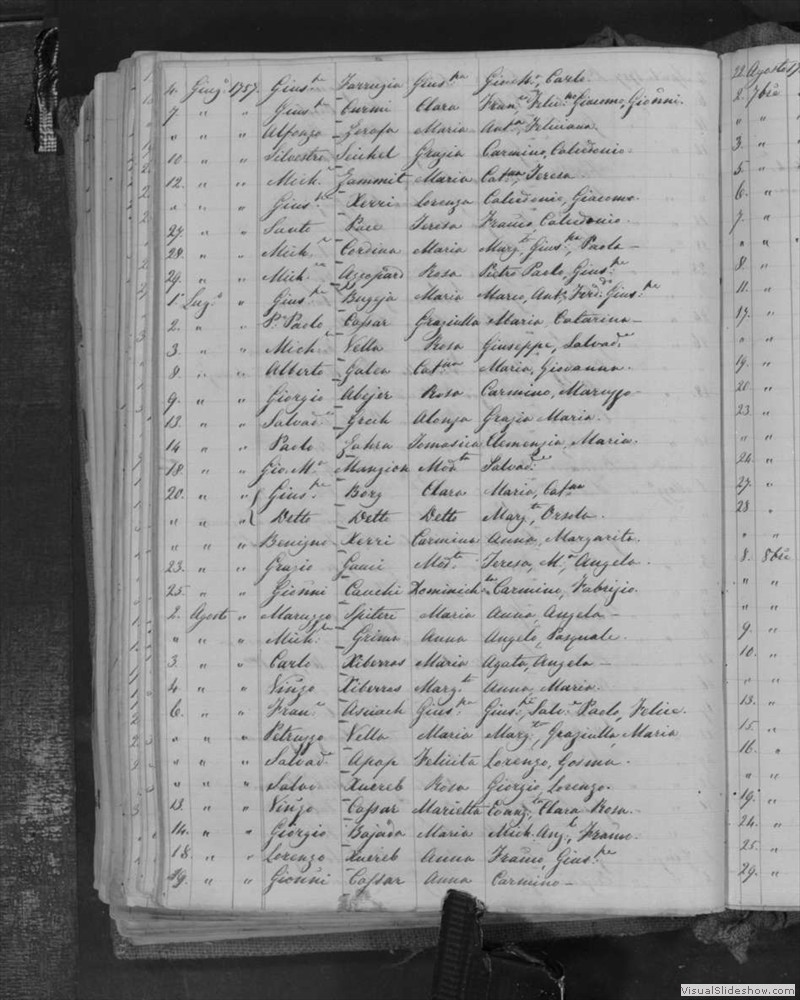 4. Giug.o 1757. Gius.pe Farrugia Gius.pa Giov.M.a, Carlo.
7. " " Gius.pe Curmi Clara Fran.co Felic.e Giacomo, Gionni.
" " " Alfonzo Zerafa Maria Ant.a, Feliciana.
10. " " Silvestro Seichel Grazia Carmino, Calcidonio.
12. " " Mich.e Zammit Maria Cat.na, Teresa.
" " " Gius.pe Xerri Lorenza Calcidonio, Giacomo.
27. " " Sante Pace Teresa Franco, Calcidonio.
28. " " Mich.e Cordina Maria Marg.ta Gius.pa, Paola
29. " " Mich.e Azzopard Rosa Pietro Paolo, Gius.pe
1. Lug.o " Gius.pe Bugeja Maria Marco, Ant.o, Ferd.o Gius.pe
2. " " P. Paolo Cassar Graziulla Maria, Catarina
3. " " Mich.e Vella Rosa Giuseppe, Salvad.e
8. " " Alberto Galea Cat.na Maria, Giovanna.
9. " " Giorgio Abejer Rosa Carmino, Maruzzo
13. " " Salvad.e Grech Alonza Grazia Maria.
14 " " Paolo Zahra Tomasica Clemenzia, Maria.
18. " " Gio. M.a Mangion Mad.a Salvad.e
20. " " Gius.pe Borg Clara Maria, Cat.na
" " " Detto Detto Detto Marg.ta, Orsola.
" " " Benigno Xerri Carmina Anna, Margarita.
23. " " Grazio Gauci Mad.a Teresa, M.a Angela.
25. " " Gionni Cauchi Dominich.a Carmino, Fabrizio.
2. Agosto " Maruzzo Spiteri Maria Anna, Angela
" " " Mich.e Grima Anna Angelo, Pasquale.
3. " " Carlo Xiberras Maria Agata, Angela
4 " " Vinzo Xiberras Marg.ta Anna, Maria.
6. " " Fran.co Asciach Gius.pa Gius.pe, Salv.e Paolo, Felice.
" " " Petruzzo Vella Maria Marg.ta, Graziulla, Maria
" " " Salvad.e Apap Felicita Lorenzo, Gosma.
" " " Salvo Xuereb Rosa Giorgio, Lorenzo.
13. " " Vinzo Cassar Marietta Evang.ta, Clara Rosa.
14. " " Giorgio Bajada Maria Mich. Ang.o, Franco.
18. " " Lorenzo Xuereb Anna Franco, Gius.pe
19. " " Gionni Cassar Anna Carmino
22. Agosto 17
2. 7bre
" "
3. "
5. "
6. "
7. "
" "
8. "
11. "
17. "
" "
19. "
20 "
23. "
" "
24. "
27. "
28 "
" "
8. 8bre
" "
" "
9. "
10. "
" "
13. "
15. "
16. "
" "
19. "
24. "
25. "
29. "
VisualSlideshow.com